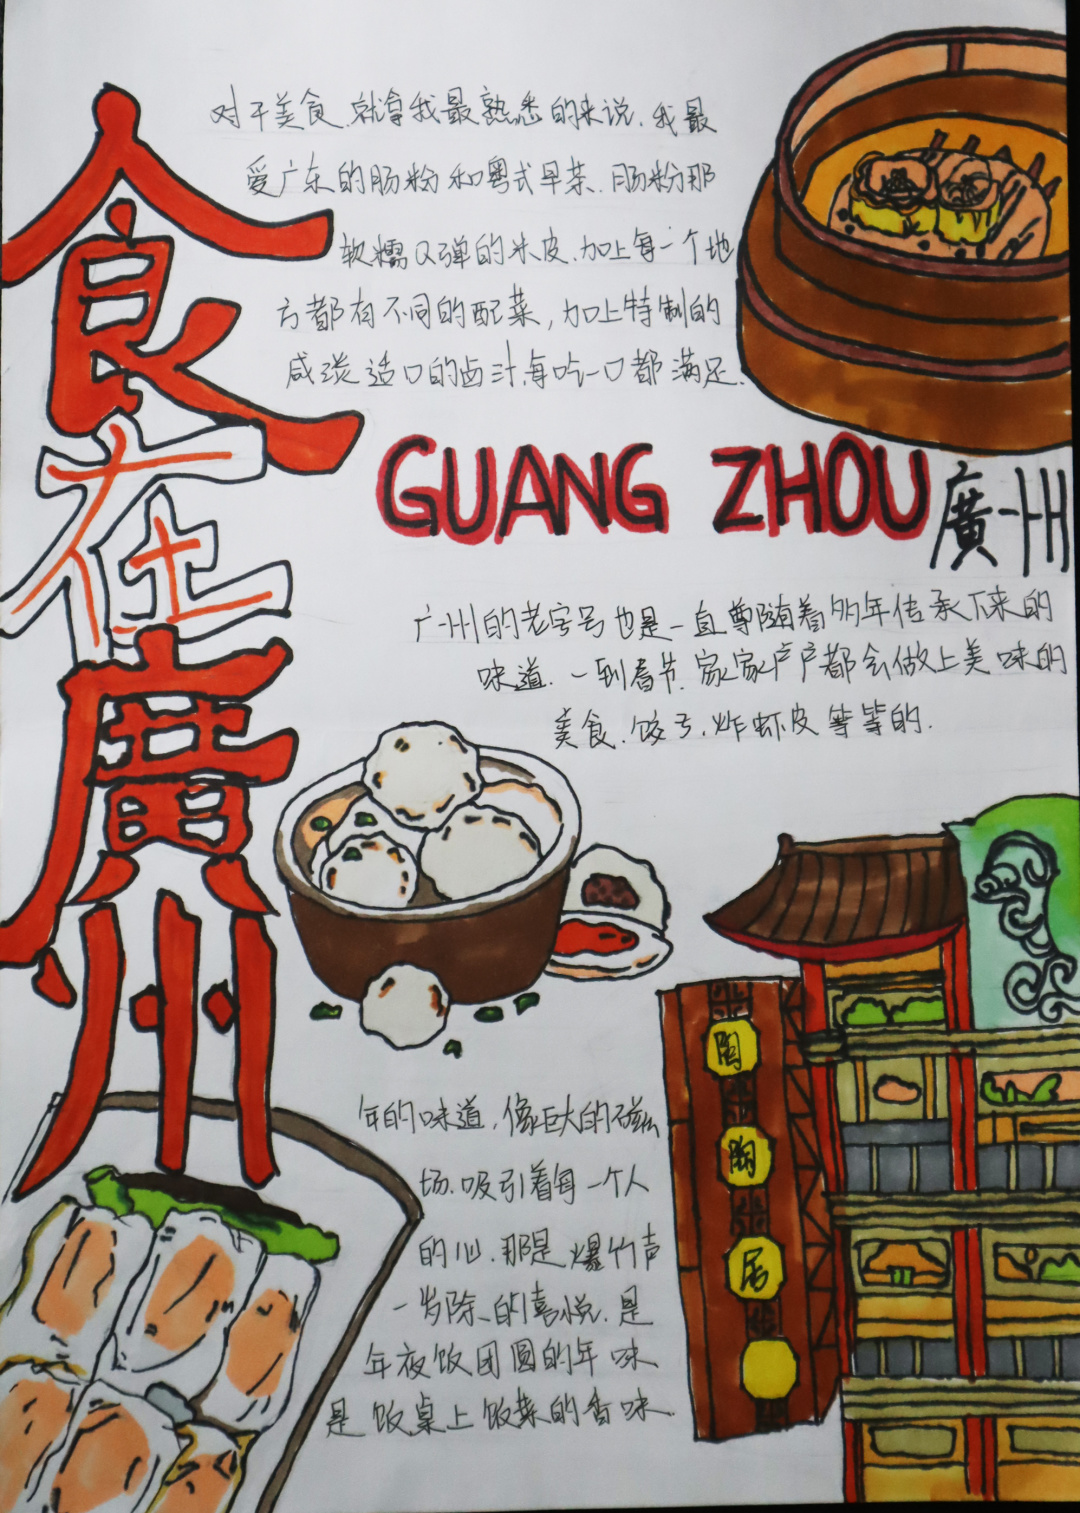 食在廣州
对于美食.就拿我最熟悉的来说.我最
爱广东的肠粉和粤式早茶.肠粉那
软糯Q弹的米皮.加上每一个地
方都有不同的配菜,加上特制的
咸淡适口的卤汁.每吃一口都满足.
GUANG ZHOU 廣州
广州的老字号也是一直尊随着多年传承下来的
味道.一到春节.家家户户都会做上美味的
美食.饺子.炸虾皮等等的.
陶
陶
居
年的味道,像巨大的磁
场.吸引着每一个人
的心.那是爆竹声
一岁除的喜悦.是
年夜饭团圆的年味
是饭桌上饭菜的香味.